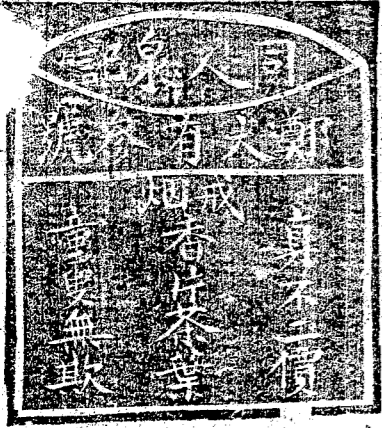 同人泉記
鄭大有參號
真不二價
戒烟香片參葉
童叟無欺